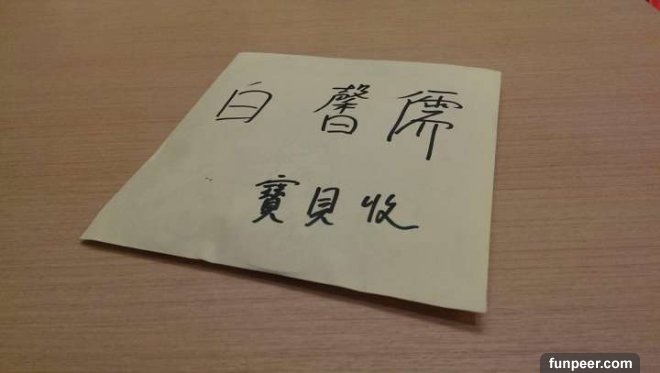 白馨儒
寶貝收
funpeer.com